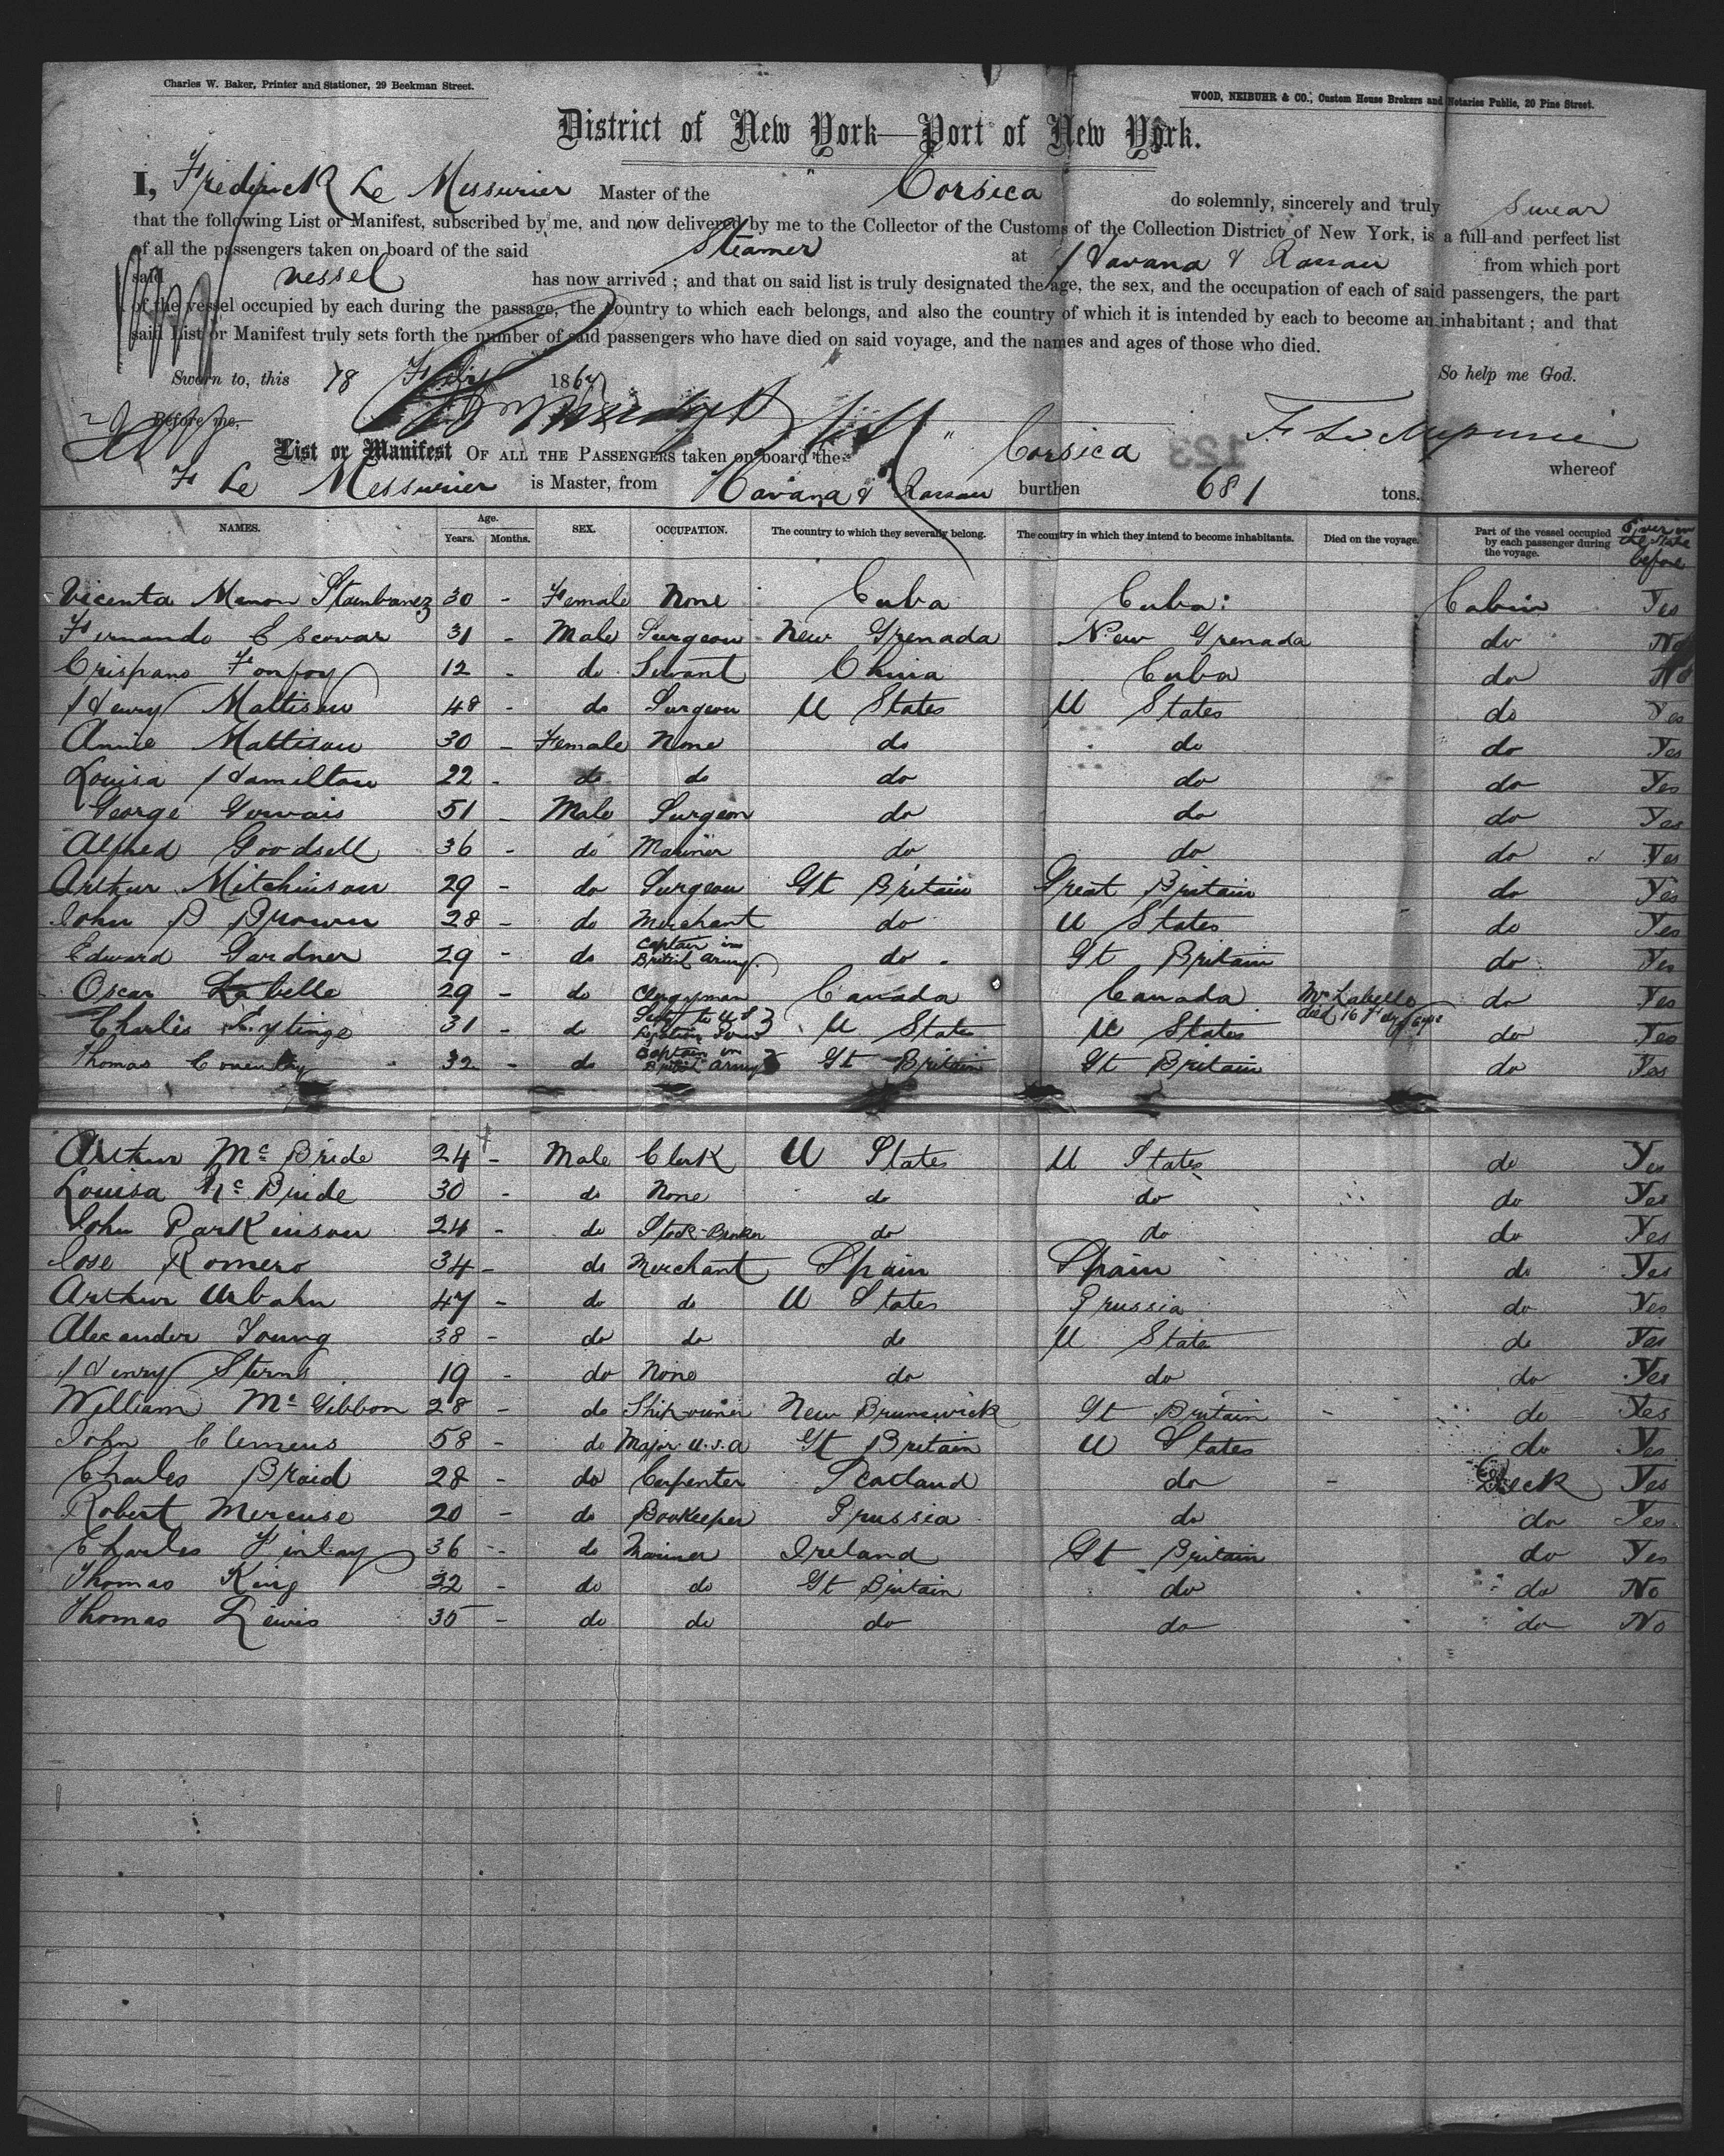 Charles W. Baker, Printer and Stationer, 29 Beekman Street.
WOOD, NEIBUHR & CO., Custom House Brokers and Notaries Public, 20 Pine Street.
District of New York—Port of New York.
I, Frederick Le Messurier Master of the Corsica do solemnly, sincerely and truly swear
that the following List or Manifest, subscribed by me, and now delivered by me to the Collector of the Customs of the Collection District of New York, is a full and perfect list
of all the passengers taken on board of the said Steamer at Havana & Nassau from which port
said vessel has now arrived; and that on said list is truly designated the age, the sex, and the occupation of each of said passengers, the part
of the vessel occupied by each during the passage, the country to which each belongs, and also the country of which it is intended by each to become an inhabitant; and that
said List or Manifest truly sets forth the number of said passengers who have died on said voyage, and the names and ages of those who died.
Sworn to, this 18 Feby 1867 So help me God.
Before me, 123
List or Manifest OF ALL THE PASSENGERS taken on board the Corsica whereof
F Le Messurier is Master, from Havana & Nassau burthen 681 tons.
NAMES. Age. Years. Months. SEX. OCCUPATION. The country to which they severally belong. The country in which they intend to become inhabitants. Died on the voyage. Part of the vessel occupied by each passenger during the voyage. Ever in the State before
Vicenta Manon 30 - Female None Cuba Cuba Cabin Yes
Fernando Escovar 31 - Male Surgeon New Grenada New Grenada do No
Crispano 12 - do Servant China Cuba do No
Henry Mattison 48 - do Surgeon U States U States do Yes
Annie Mattison 30 - Female None do do do Yes
Louisa Hamilton 22 - do do do do do Yes
George Gervais 51 - Male Surgeon do do do Yes
Alfred Goodsell 36 - do Mariner do do do Yes
Arthur Mitchinson 29 - do Surgeon Gt Britain Great Britain do Yes
John B Brown 28 - do Merchant do U States do Yes
Edward Gardner 29 - do Captain in British Army do Gt Britain do Yes
Oscar Labelle 29 - do Clergyman Canada Canada Mr Labelle died 16 do Yes
Charles Eytinge 31 - do U States U States do Yes
Thomas Coventry 32 - do Captain in British Army Gt Britain Gt Britain do Yes
Arthur McBride 24 - Male Clerk U States U States do Yes
Louisa McBride 30 - do None do do do Yes
John Parkinson 24 - do Stock-Broker do do do Yes
Jose Romero 34 - do Merchant Spain Spain do Yes
Arthur Urbahn 47 - do do U States Prussia do Yes
Alexander Young 38 - do do do U States do Yes
Henry Sterns 19 - do None do do do Yes
William McGibbon 28 - do Shipowner New Brunswick Gt Britain - do Yes
John Clemens 58 - do Major U.S.A Gt Britain U States do Yes
Charles Braid 28 - do Carpenter Scotland do - Deck Yes
Robert Mercuse 20 - do Bookeeper Prussia do do Yes
Charles Finlay 36 - do Mariner Ireland Gt Britain do Yes
Thomas King 32 - do do Gt Britain do do No
Thomas Lewis 35 - do do do do do No